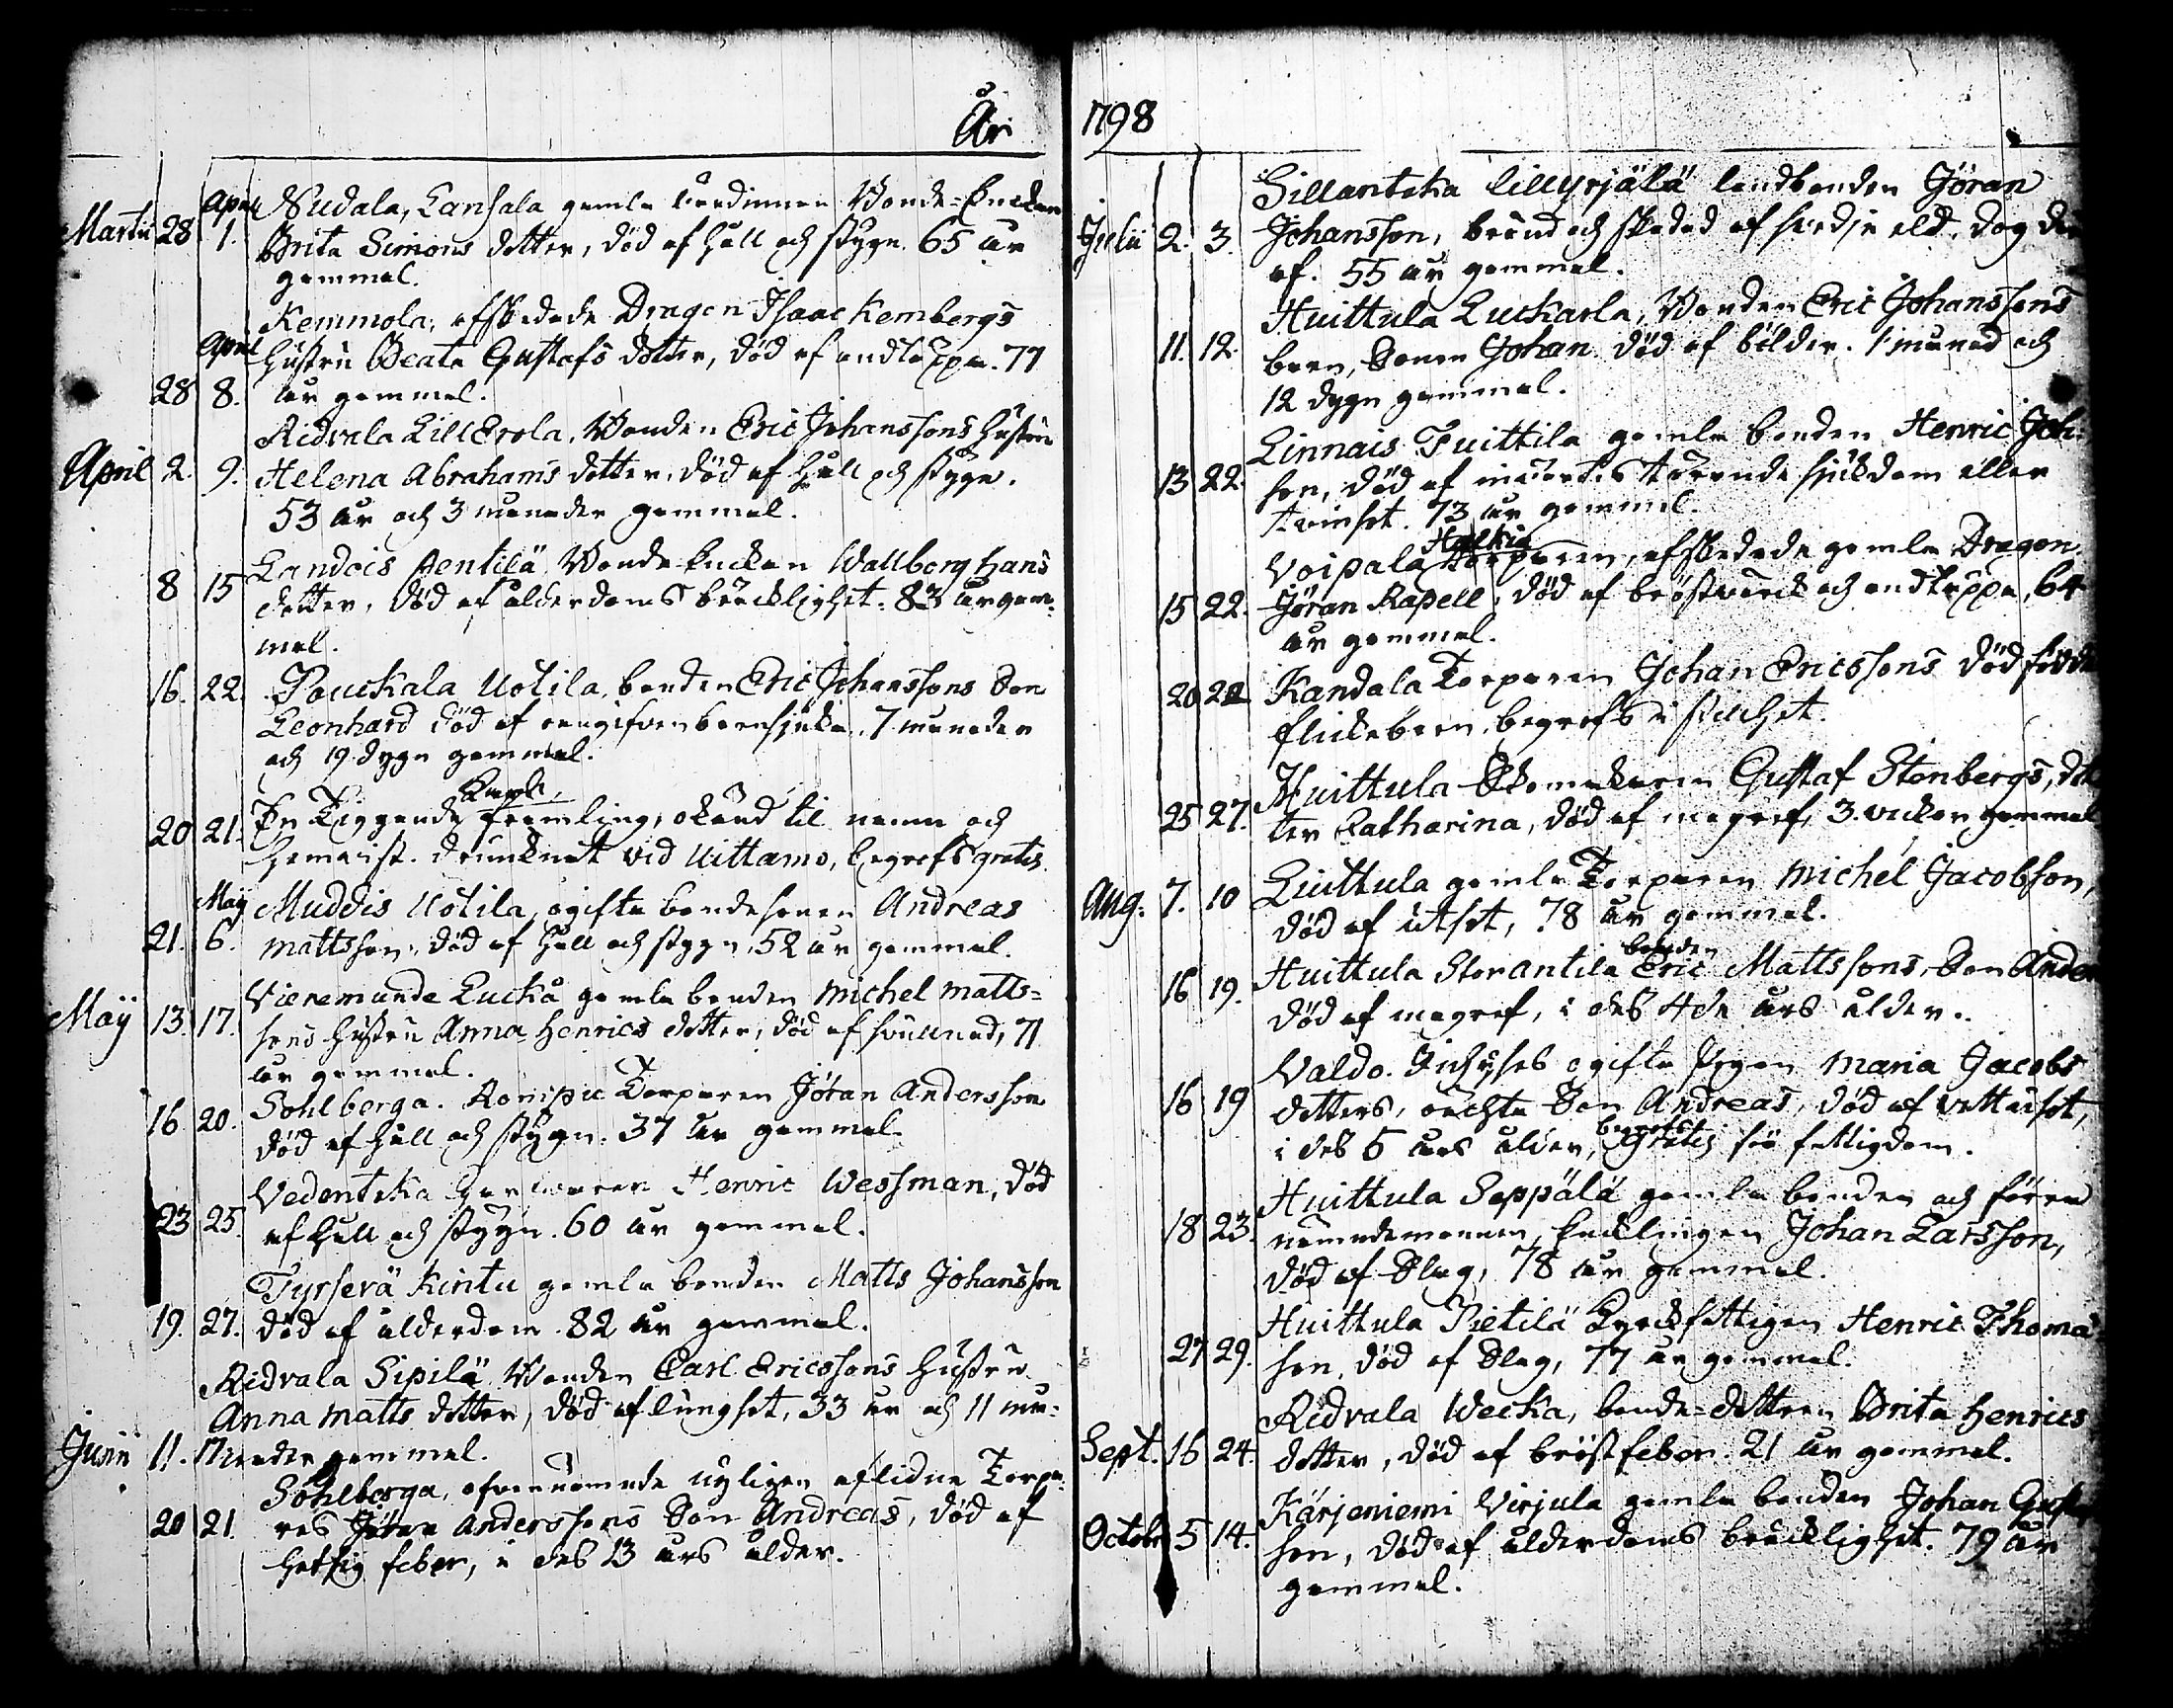 År 1798
April Nudala, Lansala gamla wärdinnan Bonde-Enckan
Martii 28 1. Brita Simons dotter, död af håll och stygn 65 år
gammal.
Kemmola, afskedade Dragon Isaac Kembergs
April hustru Beata Gustafs dotter, död af andtäppa. 77
28 8. år gammal.
Ridvala LillErola, Bonden Eric Johanssons hustru
April 2. 9. Helena Abrahams dotter, död af håll och stygn.
53 år och 3 månader gammal.
8 15 Landois Pentilä Bonde Enckan Wallborg Hans
dotter, död af ålderdoms bräcklighet. 83 år gam-
mal.
16. 22. Pauckala Uotila, bonden Eric Johanssons Son
Leonhard död af oangifven barnsjuka. 7 månader
och 19 dygn gammal.
Karl,
20 21. En Tiggande främling, okänd til namn och
hemvist. drunknat vid Uittamo, begrofs gratis.
May Muddis Uotila, ogifta bondesonen Andreas
21. 6. Mattsson, död af håll och stygn, 52 år gammal.
Vieremunde Lucka gamla bonden Michel Matts-
Maij 13. 17. sons hustru Anna Henrics dotter, död af svullnad, 71
år gammal.
16 20. Sohlberga. Torparen Jöran Andersson
död af håll och stygn. 37 år gammal.
Vedenteka Henric Wessman, död
23 25. af håll och stygn. 60 år gammal.
Tyrserä Kintu gamla bonden Matts Johansson
19. 27. död af ålderdom. 82 år gammal.
Ridvala Sipilä Bonden Carl Ericssons hustru
Anna Matts dotter, död af lungsot, 33 år och 11 må-
Junii 11. 17 nader gammal.
Sohlberga, ofvannämnde nyligen aflidne Torpa-
20 21. res Jöran Anderssons Son Andreas, död af
hetsig feber, i des 13 års ålder.
Sillanteka Lillyrjälä landbonden Jöran
Julii 2. 3. Johansson, bränd och skadad af svedje eld, dog der
af. 55 år gammal.
Huittula Luckarla, Bonden Eric Johanssons
11. 12. barn, Sonen Johan död af bölder. 1 månad och
12 dygn gammal.
Linnais Tuittila gamla bonden Henric Joh:
13 22. son, död af invärtes tärande sjukdom eller
tvinsot. 73 år gammal.
Halkia
Voipala Torparen, afskedade gamla Dragon
15 22. Jöran Rapell, död af bröstvärck och andtäppa, 64
år gammal.
20 22 Kandala Torparen Johan Ericssons dödfödda
flickebarn, begrofs i stillhet.
Huittula Skomakaren Gustaf Stenbergs, dot
25 27. ter Catharina, död af magref, 3 veckor gammal
Aug: 7. 10 Liuttula gamla Torparen Michel Jacobson,
död af utsot, 78 år gammal.
bonden
16 19. Huittula Storantila Eric Mattssons, Son Anders
död af magref, i des 4de års ålder.
Valdo. ogifta pigan Maria Jacobs
16 19 dotters, oächta Son Andreas, död af vattusot,
begrofs
i des 5 års ålder, gratis för fattigdom.
Huittula Seppälä gamla bonden och förra
18 23. nämndemannen, Encklingen Johan Larsson,
död af Slag, 78 år gammal.
Huittula Pietilä Kyrckfattigen Henric Thoma
27 29. son, död af Slag, 77 år gammal.
Ridvala Wecka, bonde-dottren Brita Henrics
Sept. 16 24. dotter, död af bröstfeber. 21 år gammal.
Kärjeniemi Virjula gamla bonden Johan Gustaf
Octobr 5 14. son, död af ålderdoms bräcklighet. 79 år
gammal.